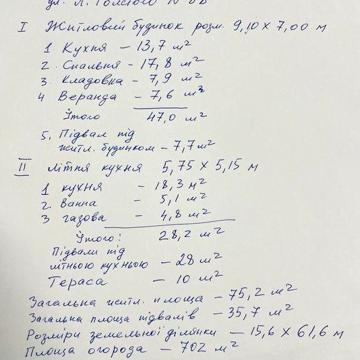 ул. Л. Толстого №
I Житловий будинок розм. 9,10 х 7,00 м
1 Кухня – 13,7 м²
2. Спальня – 17,8 м²
3. Кладовка – 7,9 м²
4 Веранда – 7,6 м²
Ітого 47,0 м²
5. Підвал під
житл. будинком – 7,7 м²
II літня кухня 5,75 х 5,15 м
1 кухня – 18,3 м²
2. Ванна – 5,1 м²
3 газова – 4,8 м²
Ітого: 28,2 м²
Підвали під
літньою кухньою – 28 м²
Тераса – 10 м²
Загальна житл. площа – 75,2 м²
Загальна площа підвалів – 35,7 м²
Розміри земельної ділянки – 15,6 х 61,6 м
Площа огорода – 702 м²